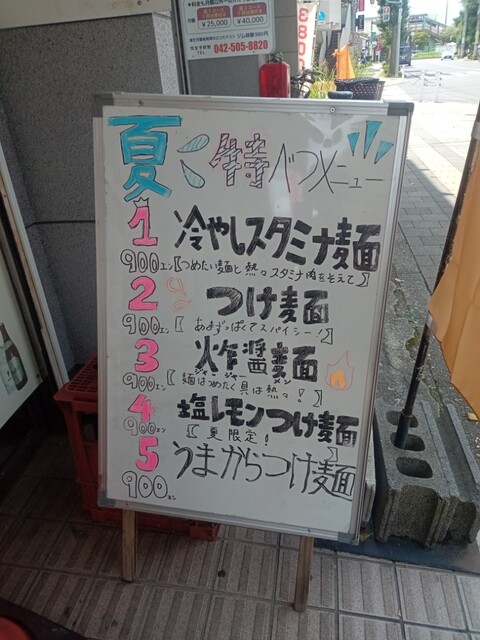 ¥25,000 ¥40,000
042-505-8820
夏 特べつメニュー
1 冷やしスタミナ麺
900エン【つめたい麺と熱々スタミナ肉をそえて】
2 つけ麺
900エン【あまずっぱくてスパイシー!】
3 炸醤麺
ジャージャーメン
900エン【麺はつめたく具は熱々!】
4 塩レモンつけ麺
900エン【夏限定!】
5 うまからつけ麺
900エン